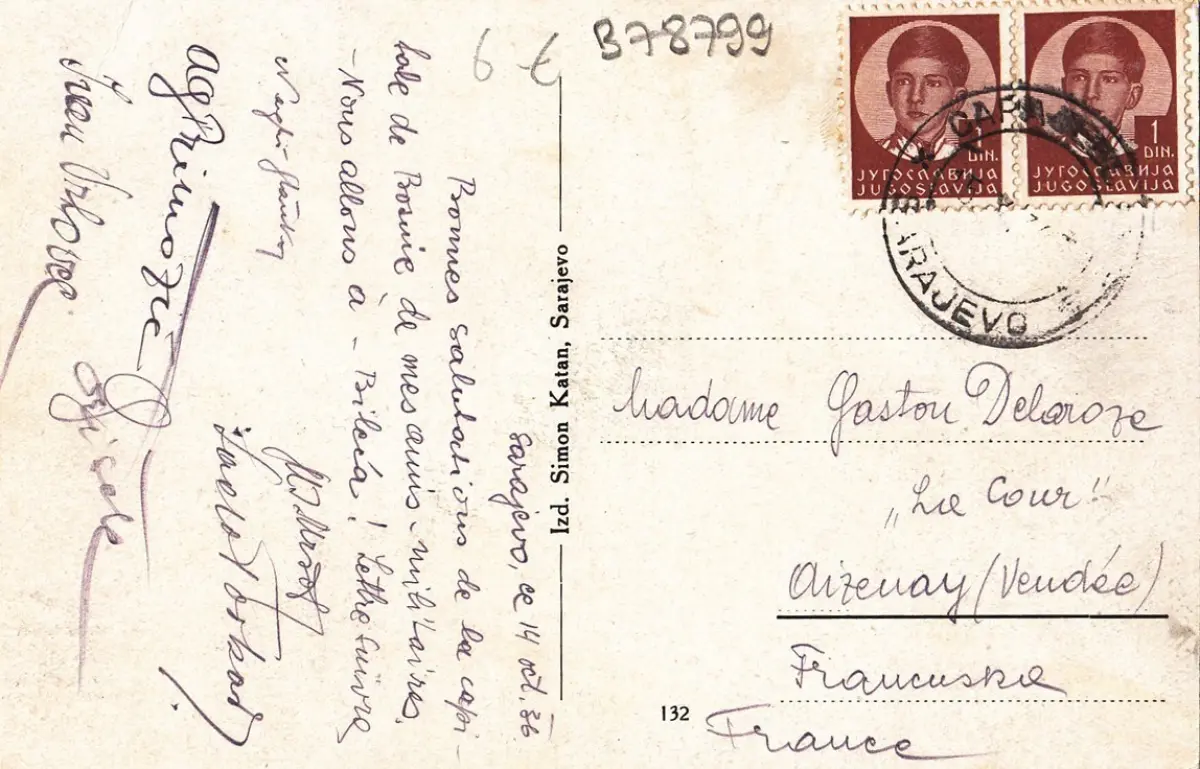 Sarajevo, ce 14 oct. 36
Bonnes salutations de la capi-
tale de Bosnie de mes amis-militaires.
- Nous allons à - Bileća! Lettre suivra
Ivan Vrhovec
Gisele
6 €
B78799
Izd. Simon Katan, Sarajevo
132
1
DIN.
ЈУГОСЛАВИЈА
JUGOSLAVIJA
1
DIN.
ЈУГОСЛАВИЈА
JUGOSLAVIJA
SARAJEVO
Madame Gaston Delaroze
„La Cour"
Aizenay (Vendée)
Francuska
France